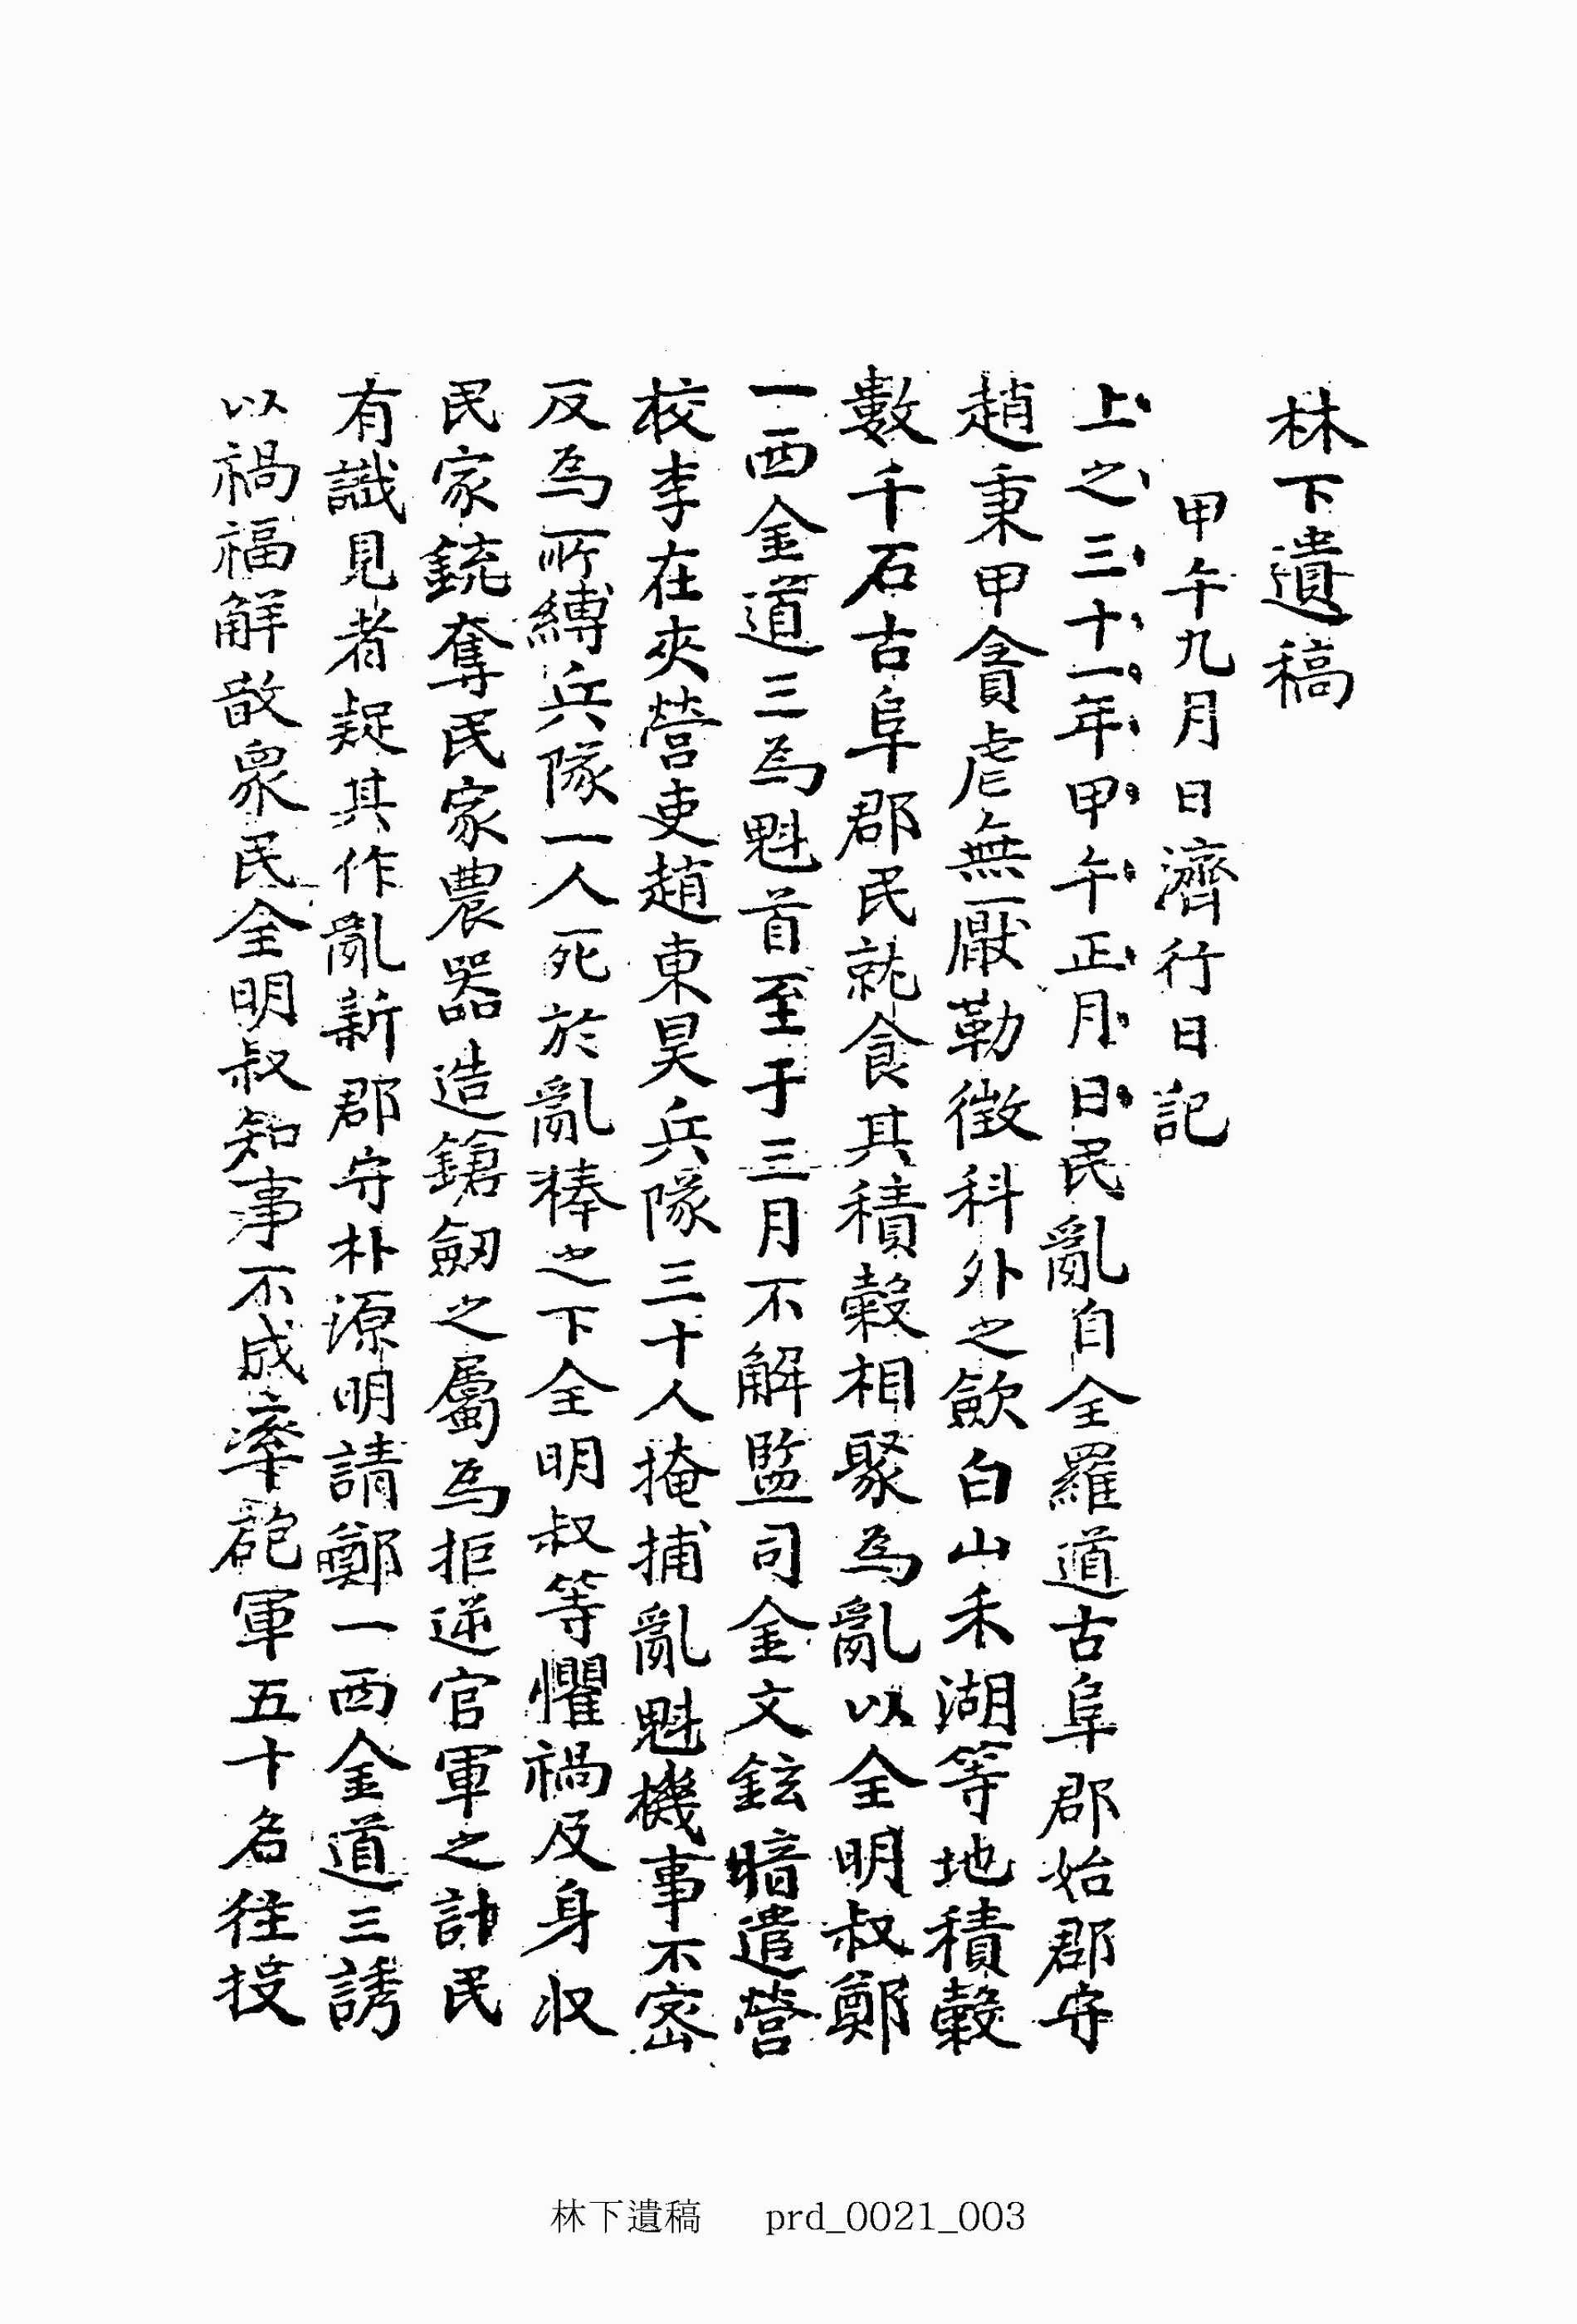 林下遺稿
甲午九月日濟行日記
上之三十一年甲午正月日民亂自全羅道古阜郡始郡守
趙秉甲貪虐無厭勒徵科外之歛白山禾湖等地積穀
數千石古阜郡民就食其積穀相聚爲亂以全明叔鄭
一西金道三爲魁首至于三月不解監司金文鉉暗遣營
校李在夾營吏趙東昊兵隊三十人掩捕亂魁機事不密
反爲所縛兵隊一人死於亂棒之下全明叔等懼禍及身収
民家銃奪民家農器造鎗劒之屬爲拒逆官軍之計民
有識見者疑其作亂新郡守朴源明請鄭一西金道三誘
以禍福解散衆民全明叔知事不成率砲軍五十名往投
林下遺稿 prd_0021_003